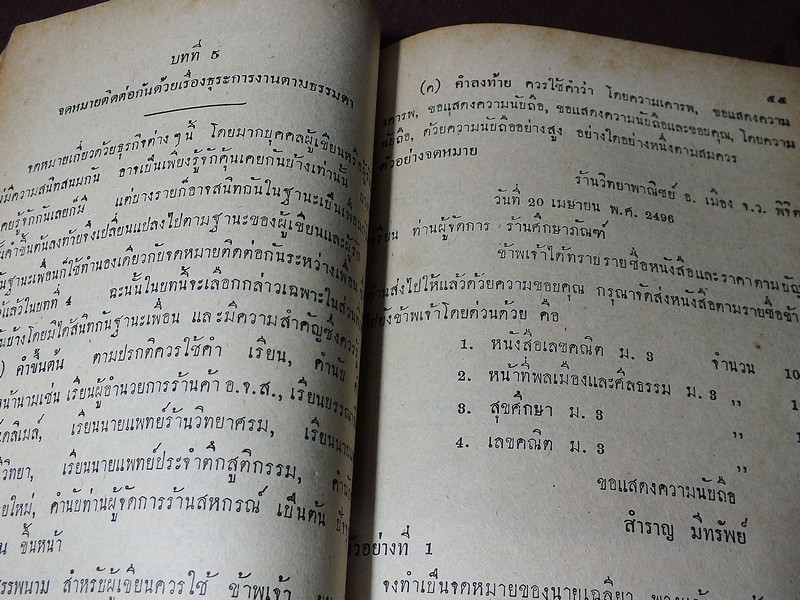 บทที่ 5
จดหมายติดต่อกันด้วยเรื่องธุระการงานตามธรรมดา
จดหมายเกี่ยวด้วยธุรกิจต่าง ๆ นี้ โดยมากบุคคลผู้เขียนหรือผู้รับ
มีความสนิทสนมกัน อาจเป็นเพียงรู้จักคุ้นเคยกันบ้างเท่านั้น
เคยรู้จักกันเลยก็มี แต่บางรายก็อาจสนิทกันในฐานะเป็นเพื่อน
คำขึ้นต้นลงท้ายจึงเปลี่ยนแปลงไปตามฐานะของผู้เขียนและผู้รับ
ฐานะเพื่อนก็ใช้ทำนองเดียวกับจดหมายติดต่อกันระหว่างเพื่อน
แล้วในบทที่ 4 ฉะนั้นในบทนี้จะเลือกกล่าวเฉพาะในส่วน
โดยมิได้สนิทกันฐานะเพื่อน และมีความสำคัญซึ่งควร
คำขึ้นต้น ตามปรกติควรใช้คำ เรียน, คำนับ
หน้านามเช่น เรียนผู้อำนวยการร้านค้า อ.จ.ส., เรียน
เรียนนายแพทย์ร้านวิทยาศรม, เรียน
วิทยา, เรียนนายแพทย์ประจำตึกสูติกรรม,
ใหม่, คำนับท่านผู้จัดการร้านสหกรณ์ เป็นต้น
ขึ้นหน้า
สรรพนาม สำหรับผู้เขียนควรใช้ ข้าพเจ้า
๕๕
(ค) คำลงท้าย ควรใช้คำว่า โดยความเคารพ, ขอแสดงความ
เคารพ, ขอแสดงความนับถือ, ขอแสดงความนับถือและขอบคุณ, โดยความ
นับถือ, ด้วยความนับถืออย่างสูง อย่างใดอย่างหนึ่งตามสมควร
ตัวอย่างจดหมาย
ร้านวิทยาพาณิชย์ อ. เมือง จ.ว. พิจิตร
วันที่ 20 เมษายน พ.ศ. 2496
เรียน ท่านผู้จัดการ ร้านศึกษาภัณฑ์
ข้าพเจ้าได้ทราบรายชื่อหนังสือและราคาตามบัญ
ท่านส่งไปให้แล้วด้วยความขอบคุณ กรุณาจัดส่งหนังสือตามรายชื่อข้าง
ไปยังข้าพเจ้าโดยด่วนด้วย คือ
1. หนังสือเลขคณิต ม. 3 จำนวน 10
2. หน้าที่พลเมืองและศีลธรรม ม. 3 ,, 1
3. สุขศึกษา ม. 3 ,, 1
4. เลขคณิต ม. 3 ,,
ขอแสดงความนับถือ
สำราญ มีทรัพย์
ตัวอย่างที่ 1
จงทำเป็นจดหมายของนายเฉลียว